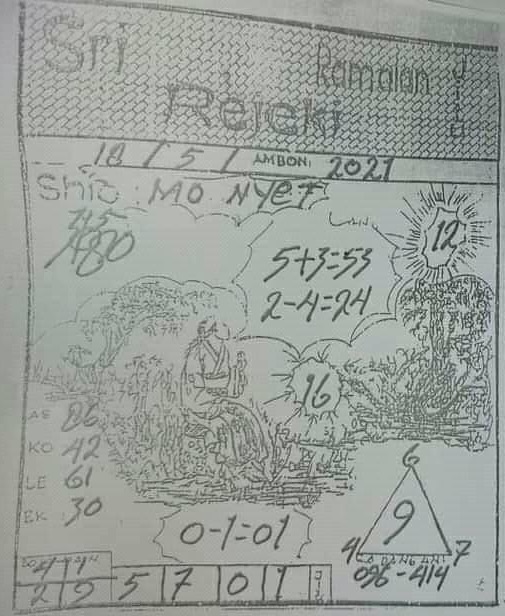 Sri
Ramalan
Rejeki
18 / 5 / AMBON: 2021
Shio: MO NYET
45
12
5+3=53
2-4=24
16
AS 86
KO 42
LE 61
EK 30
6
9
4 7
0-1=01
096-414
2 9 5 7 0 1